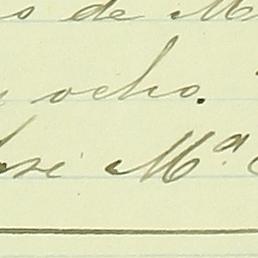 s de M
y ocho.
José Mª